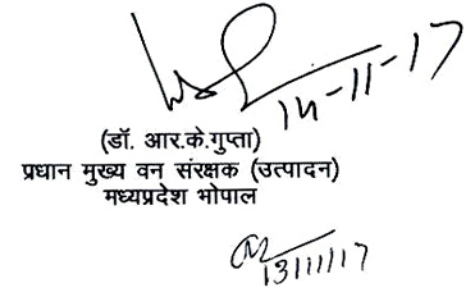 14-11-17
(डॉ. आर.के.गुप्ता)
प्रधान मुख्य वन संरक्षक (उत्पादन)
मध्यप्रदेश भोपाल
13/11/17